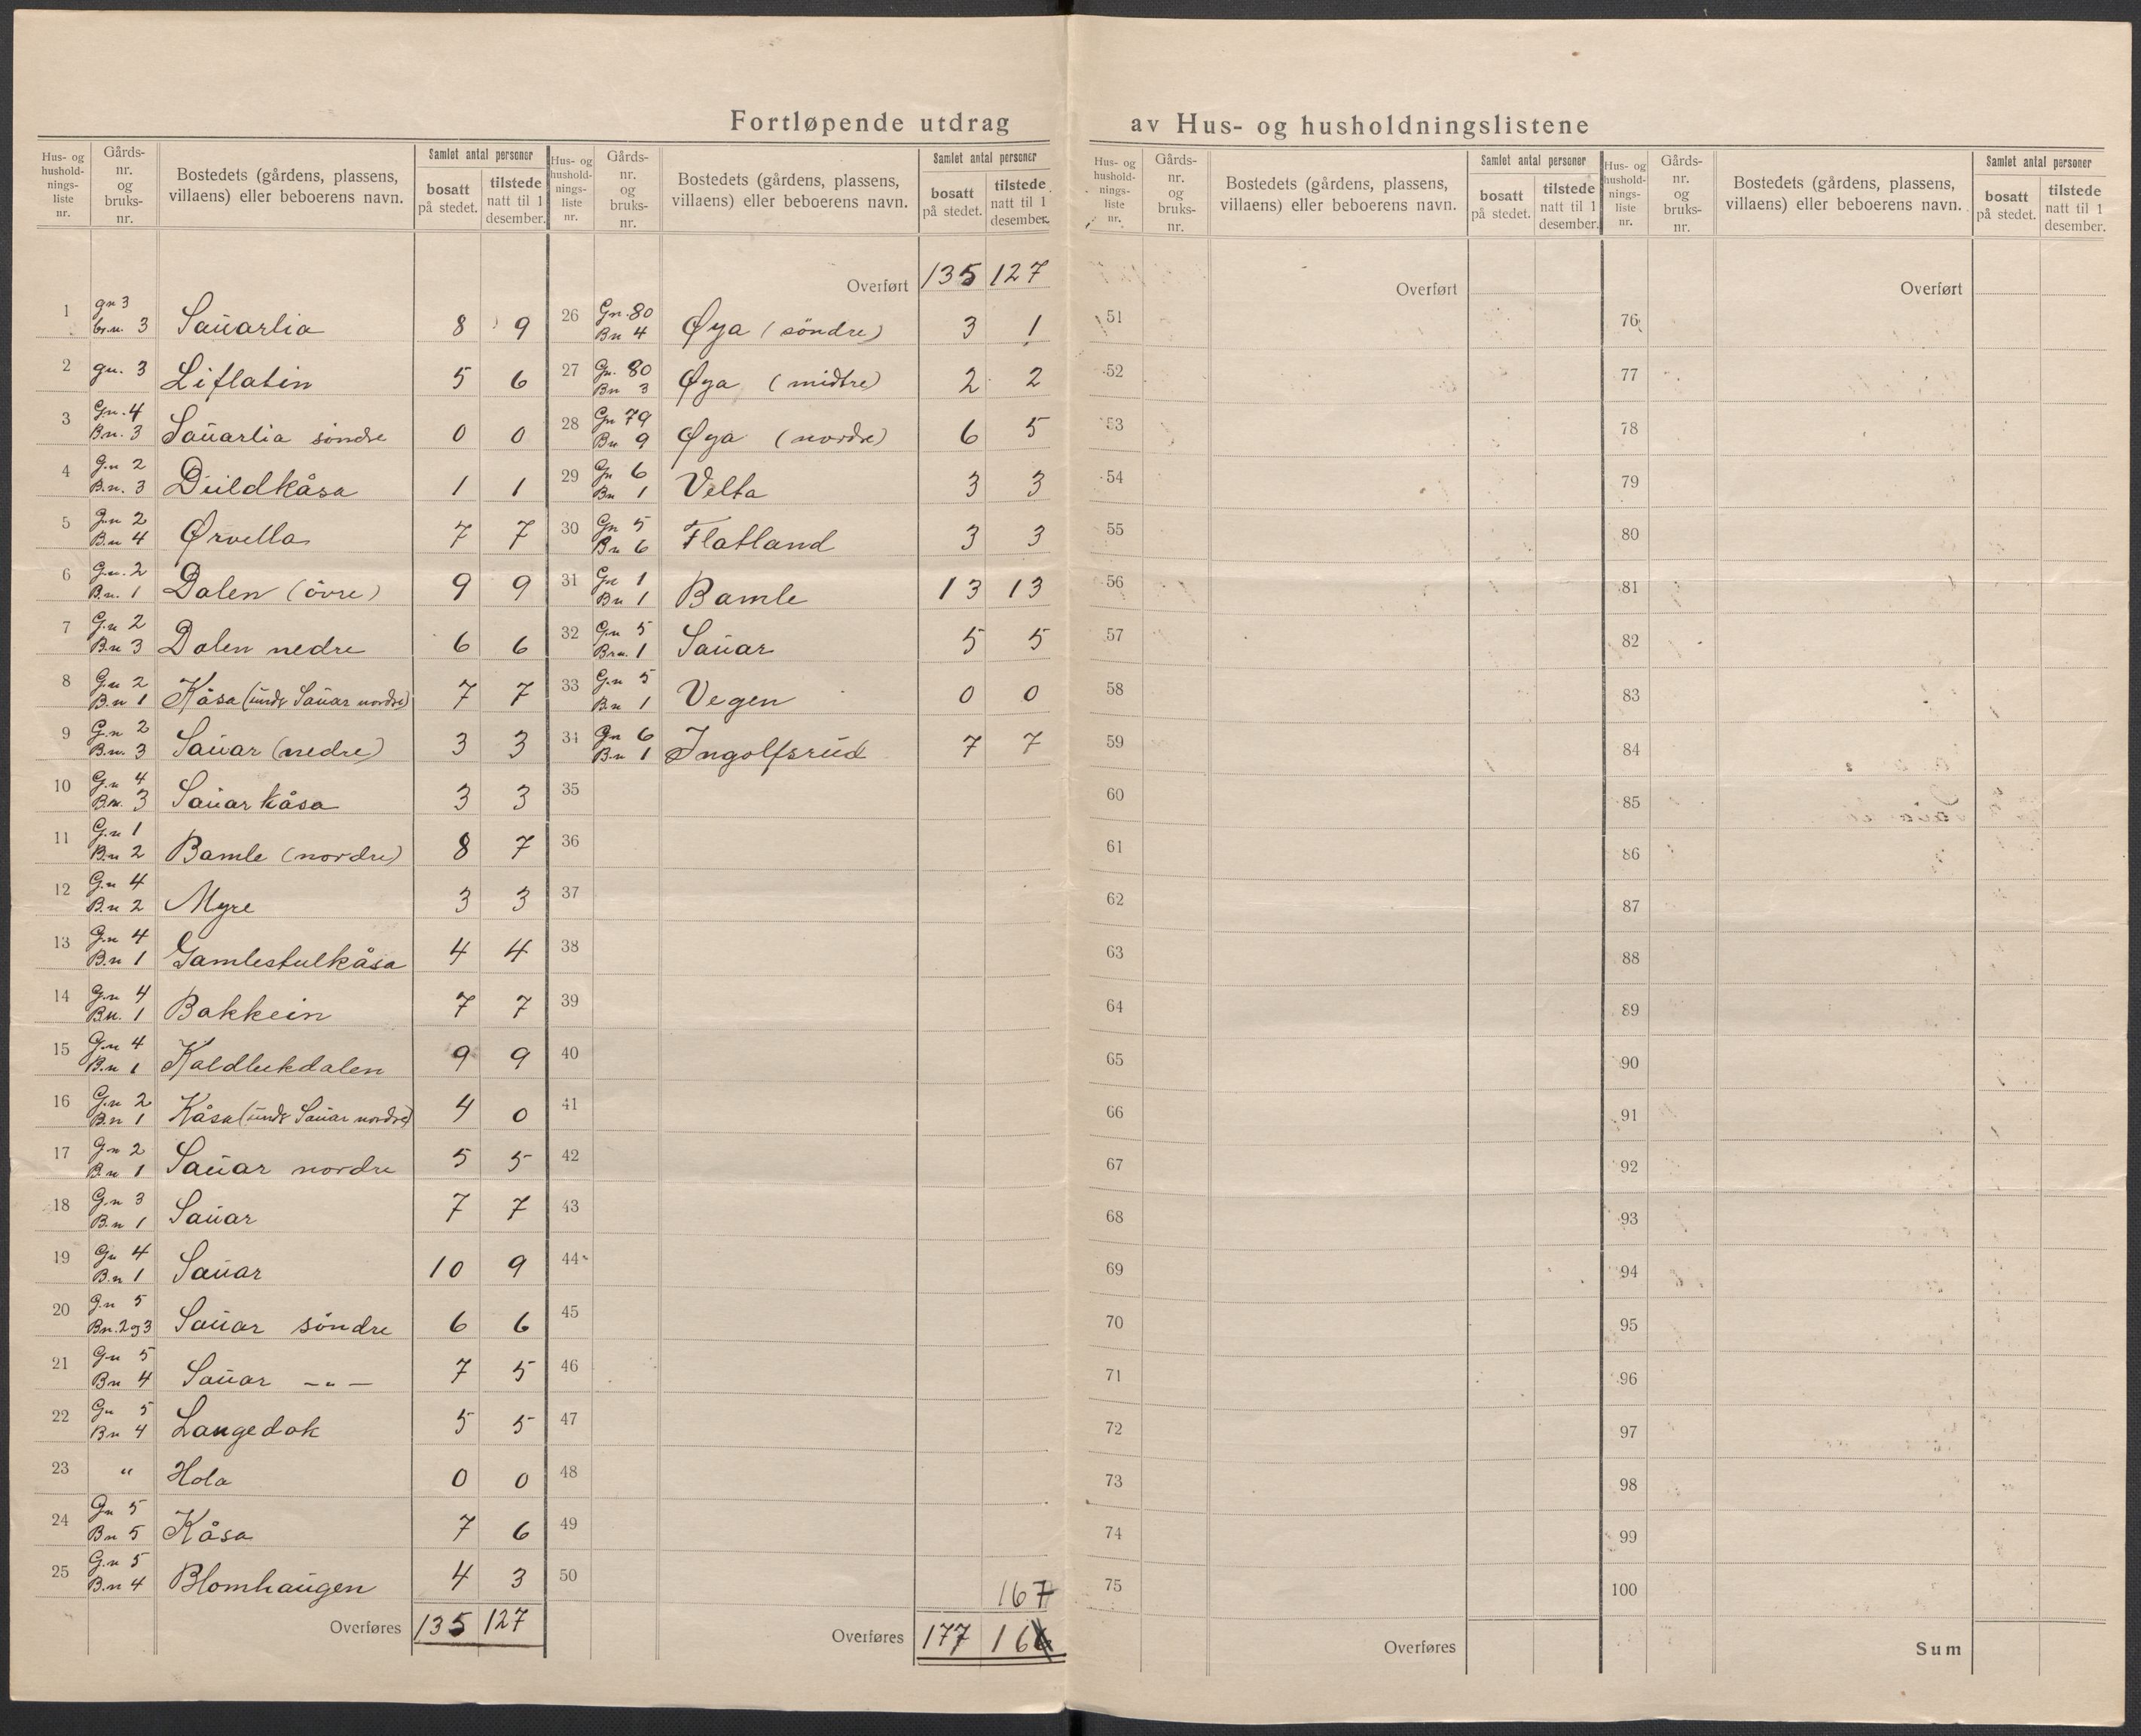 Fortløpende utdrag av Hus- og husholdningslistene
Hus- og hushold-nings-liste nr. Gårds-nr. og bruks-nr. Bostedets (gårdens, plassens, villaens) eller beboerens navn. Samlet antal personer bosatt på stedet. tilstede natt til 1 desember.
Hus- og hushold-nings-liste nr. Gårds-nr. og bruks-nr. Bostedets (gårdens, plassens, villaens) eller beboerens navn. Samlet antal personer bosatt på stedet. tilstede natt til 1 desember.
Hus- og hushold-nings-liste nr. Gårds-nr. og bruks-nr. Bostedets (gårdens, plassens, villaens) eller beboerens navn. Samlet antal personer bosatt på stedet. tilstede natt til 1 desember.
Hus- og hushold-nings-liste nr. Gårds-nr. og bruks-nr. Bostedets (gårdens, plassens, villaens) eller beboerens navn. Samlet antal personer bosatt på stedet. tilstede natt til 1 desember.
1 gn 3 br.n. 3 Sauarlia 8 9
2 gn. 3 Liflatin 5 6
3 Gn. 4 Bn. 3 Sauarlia söndre 0 0
4 G.n 2 B.n. 3 Duildkåsa 1 1
5 G.n 2 B.n 4 Ørvella 7 7
6 G.n. 2 B.n. 1 Dalen (övre) 9 9
7 G.n 2 B.n 3 Dalen nedre 6 6
8 G.n 2 B.n 1 Kåsa (undr Sauar nordre) 7 7
9 G.n 2 B.n. 3 Sauar (nedre) 3 3
10 G.n 4 B.n. 3 Sauarkåsa 3 3
11 G.n 1 B.n 2 Bamle (nordre) 8 7
12 G.n 4 B.n 2 Myre 3 3
13 G.n 4 B.n 1 Gamlestulkåsa 4 4
14 G.n 4 B.n. 1 Bakkein 7 7
15 G.n 4 B.n 1 Kaldbekdalen 9 9
16 G.n 2 B.n 1 Kåsa (undr Sauar nordre) 4 0
17 G.n 2 B.n 1 Sauar nordre 5 5
18 G.n 3 B.n 1 Sauar 7 7
19 Gn 4 B.n 1 Sauar 10 9
20 G.n 5 Bn. 2 og 3 Sauar söndre 6 6
21 Gn 5 Bn 4 Sauar –"– 7 5
22 Gn 5 Bn 4 Langedok 5 5
23 " Hola 0 0
24 Gn 5 Bn 5 Kåsa 7 6
25 G.n 5 B.n 4 Blomhaugen 4 3
Overføres 135 127
Overført 135 127
26 Gn. 80 Bn 4 Øya (söndre) 3 1
27 Gn. 80 Bn 3 Øya (midtre) 2 2
28 Gn 79 Bn 9 Øya (nordre) 6 5
29 Gn 6 Bn 1 Velta 3 3
30 Gn 5 Bn 6 Flatland 3 3
31 Gn 1 Bn 1 Bamle 13 13
32 G.n 5 Brn. 1 Sauar 5 5
33 G.n 5 B.n 1 Vegen 0 0
34 Gn 6 B.n 1 Ingolfsrud 7 7
35
36
37
38
39
40
41
42
43
44
45
46
47
48
49
50
167
Overføres 177 166
Overført
51
52
53
54
55
56
57
58
59
60
61
62
63
64
65
66
67
68
69
70
71
72
73
74
75
Overføres
Overført
76
77
78
79
80
81
82
83
84
85
86
87
88
89
90
91
92
93
94
95
96
97
98
99
100
Sum